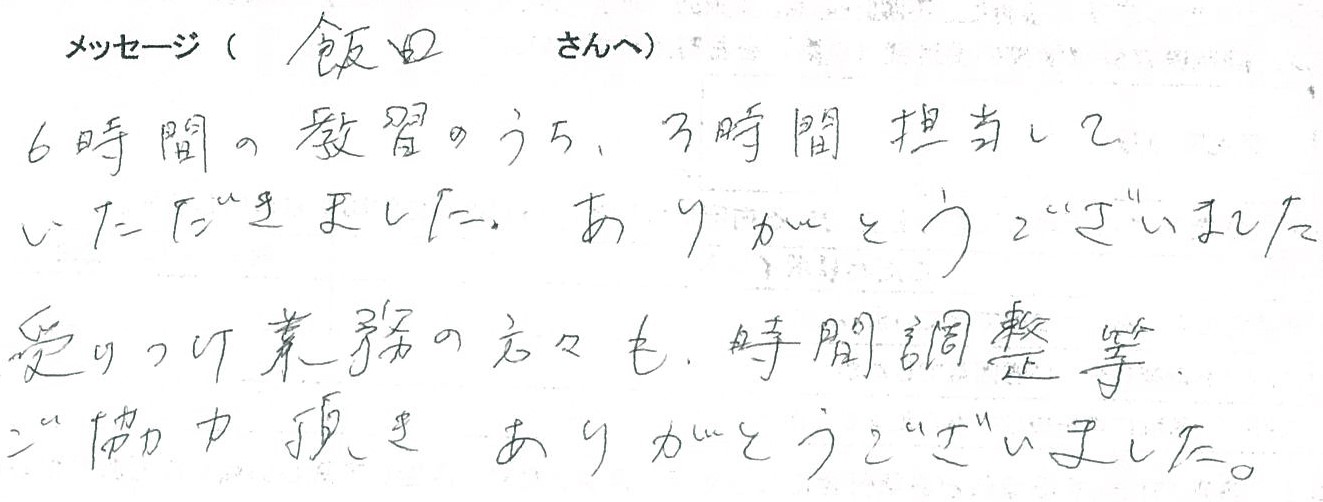 メッセージ（ 飯田 さんへ）
6時間の教習のうち、3時間担当して
いただきました。ありがとうございました
受りつけ業務の方々も、時間調整等、
ご協力頂きありがとうございました。